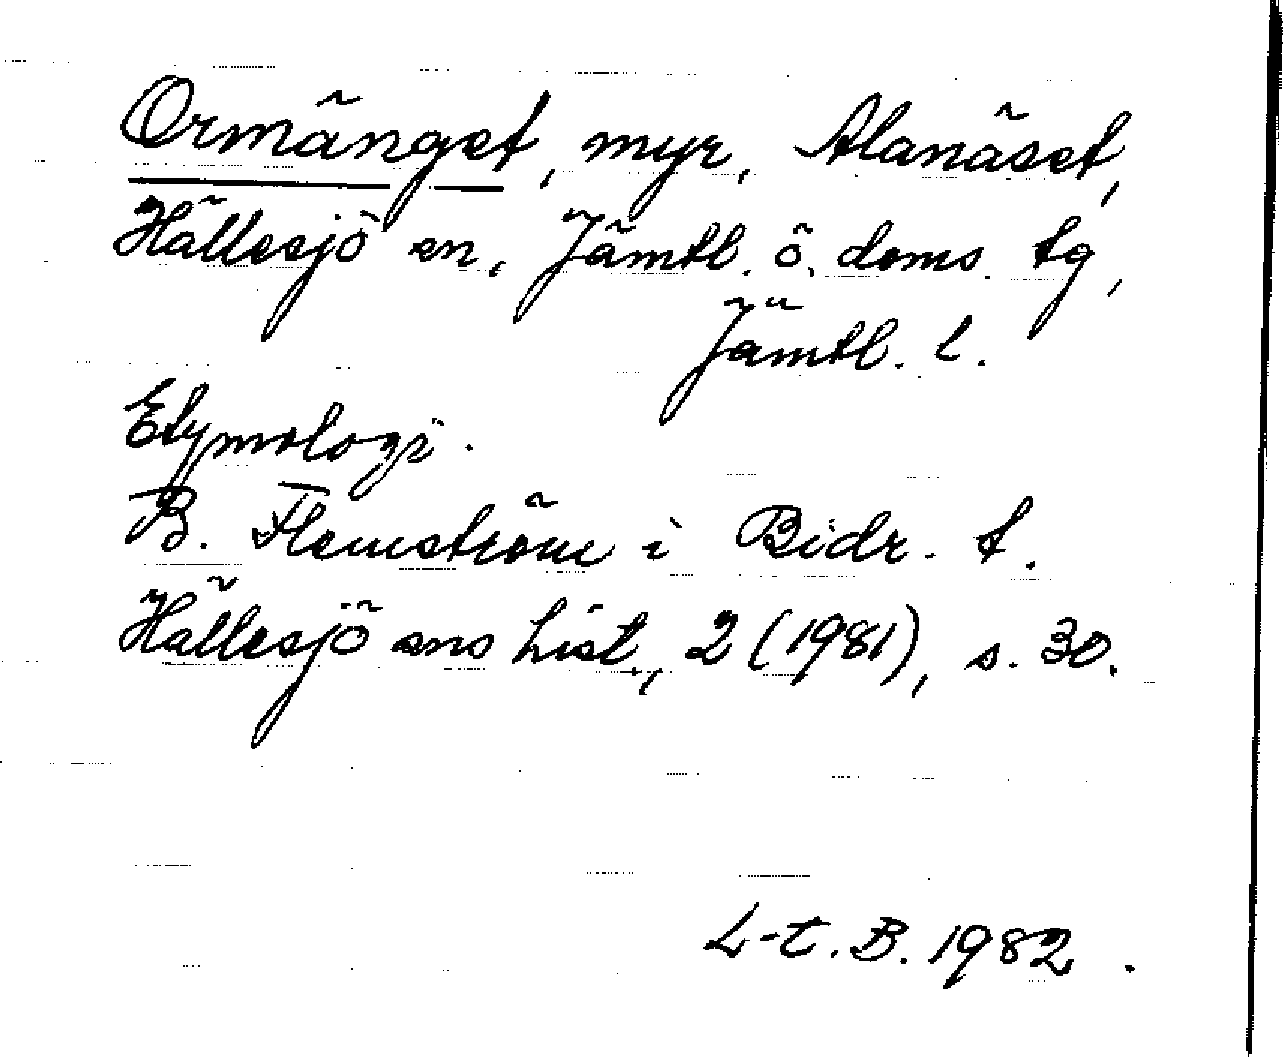 Ormänget, myr, Alanäset,
Hällesjö sn, Jämtl. ö. doms. tg,
Jämtl. l.
Etymologi.
B. Flemström i Bidr. t.
Hällesjö sns hist., 2 (1981), s. 30.
L-t. B. 1982.